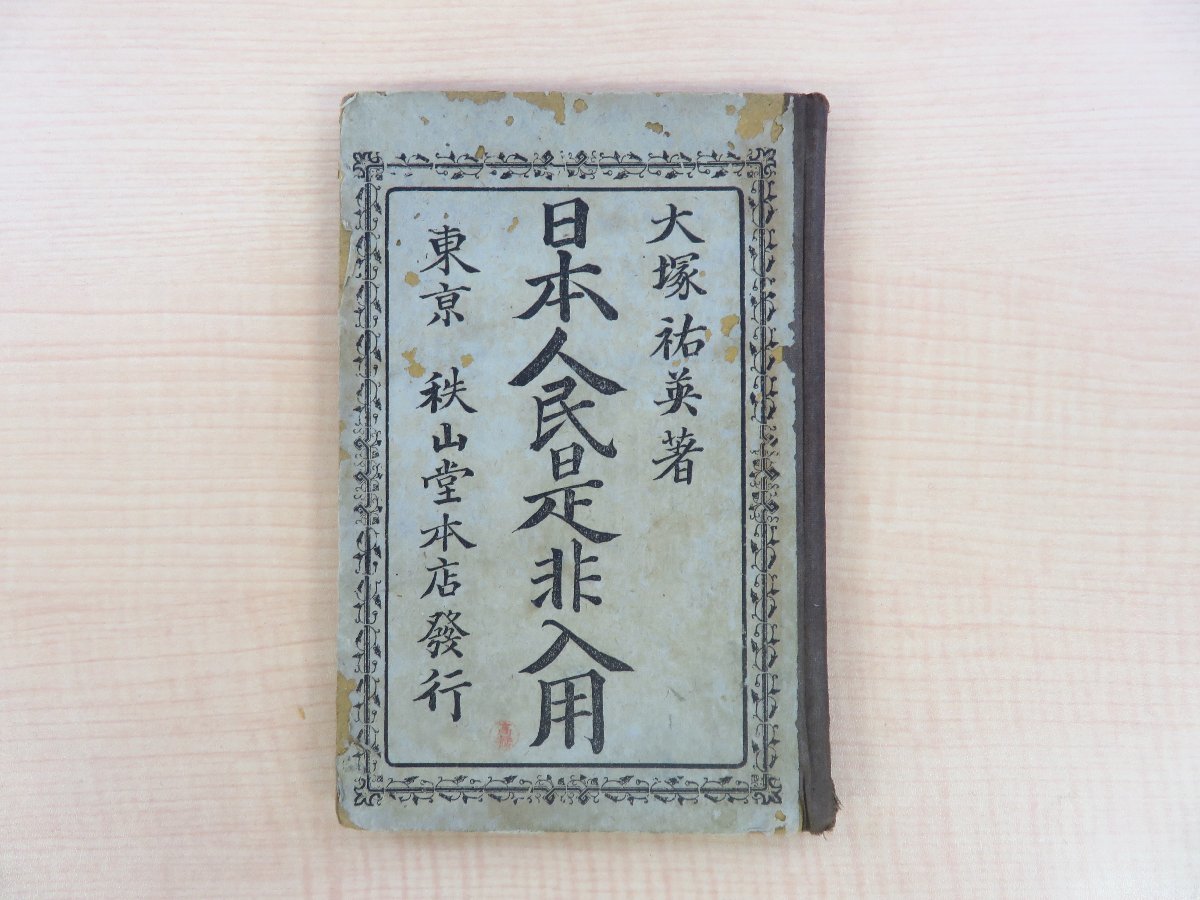 大塚祐英著
日本人民是非入用
東亰 秩山堂本店發行